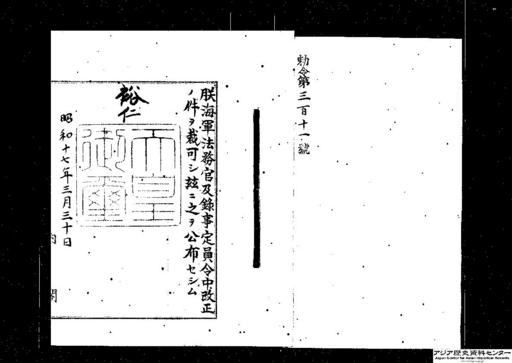 勅令第三百十一號
朕海軍法務官及錄事定員令中改正
ノ件ヲ裁可シ玆ニ之ヲ公布セシム
裕仁
天皇
御璽
昭和十七年三月三十日
内閣
アジア歴史資料センター
Japan Center for Asian Historical Records